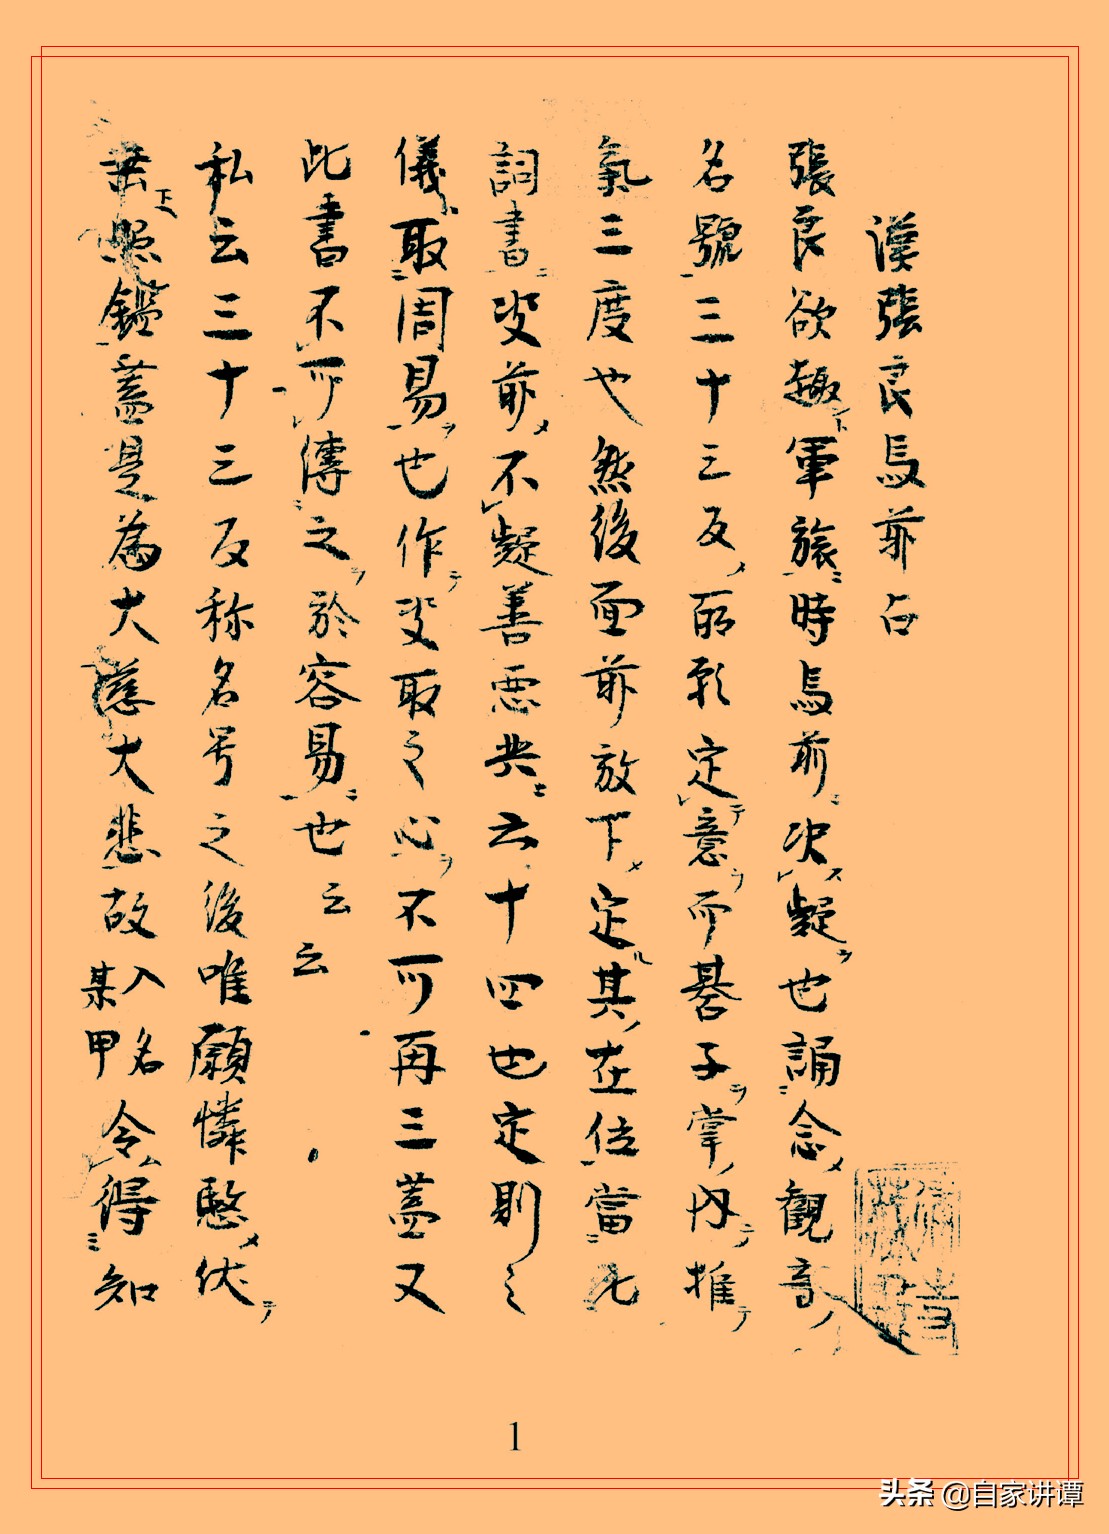 漢張良馬前占
張良欲趣軍旅時馬前決疑也誦念觀音
名號三十三反所願定意而碁子掌內推
氣三度也然後面前放下定其在位當此
詞書吏前不疑善惡共云十四也定則之
儀取周易也作吏取之心不可再三蓋又
此書不可傳之於容易也云云
私云三十三反称名号之後唯願憐愍伏
照鑑蓋是為大慈大悲故入名某甲令得知
1
头条 @自家讲谭